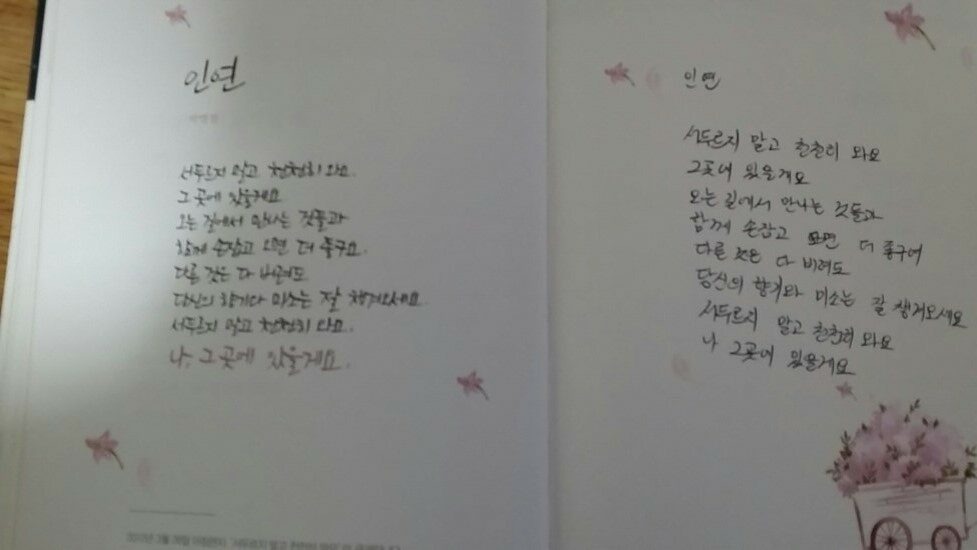 인연
서두르지 말고 천천히 와요.
그 곳에 있을게요
오는 길에서 만나는 것들과
함께 손잡고 오면 더 좋구요.
다른 것은 다 버려도
당신의 향기와 미소는 잘 챙겨오세요
서두르지 말고 천천히 와요.
나, 그 곳에 있을게요.
인연
서두르지 말고 천천히 와요
그곳에 있을게요
오는 길에서 만나는 것들과
함께 손잡고 오면 더 좋구여
다른 것은 다 버려도
당신의 향기와 미소는 잘 챙겨오세요
서두르지 말고 천천히 와요
나 그곳에 있을게요